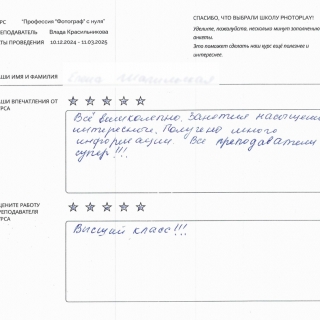 РС "Профессия "Фотограф" с нуля"
РЕПОДАВАТЕЛЬ Влада Красильникова
АТЫ ПРОВЕДЕНИЯ 10.12.2024 - 11.03.2025
СПАСИБО, ЧТО ВЫБРАЛИ ШКОЛУ PHOTOPLAY!
Уделите, пожалуйста, несколько минут заполнению
анкеты.
Это поможет сделать наш курс ещё полезнее и
интереснее.
АШИ ИМЯ И ФАМИЛИЯ
АШИ ВПЕЧАТЛЕНИЯ ОТ
УРСА
Всё великолепно. Занятия насыщенн
интересные. Получено много
информации. Все преподаватели
супер!!!
ЦЕНИТЕ РАБОТУ
РЕПОДАВАТЕЛЯ
УРСА
Высший класс!!!